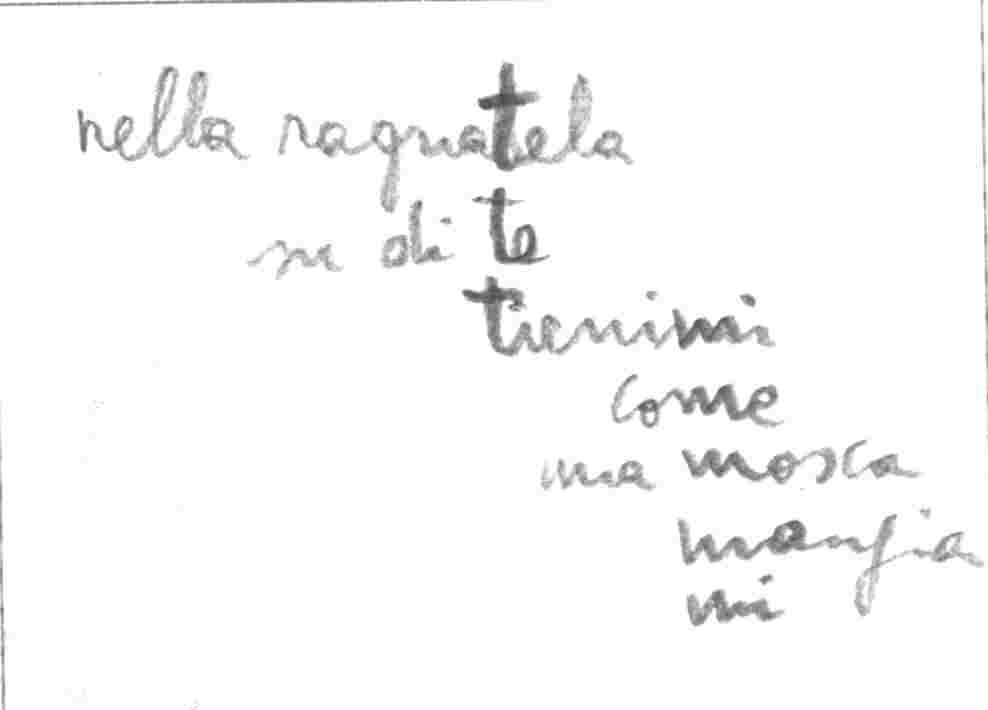 nella ragnatela
su di te
tienimi
come
una mosca
mangia
mi